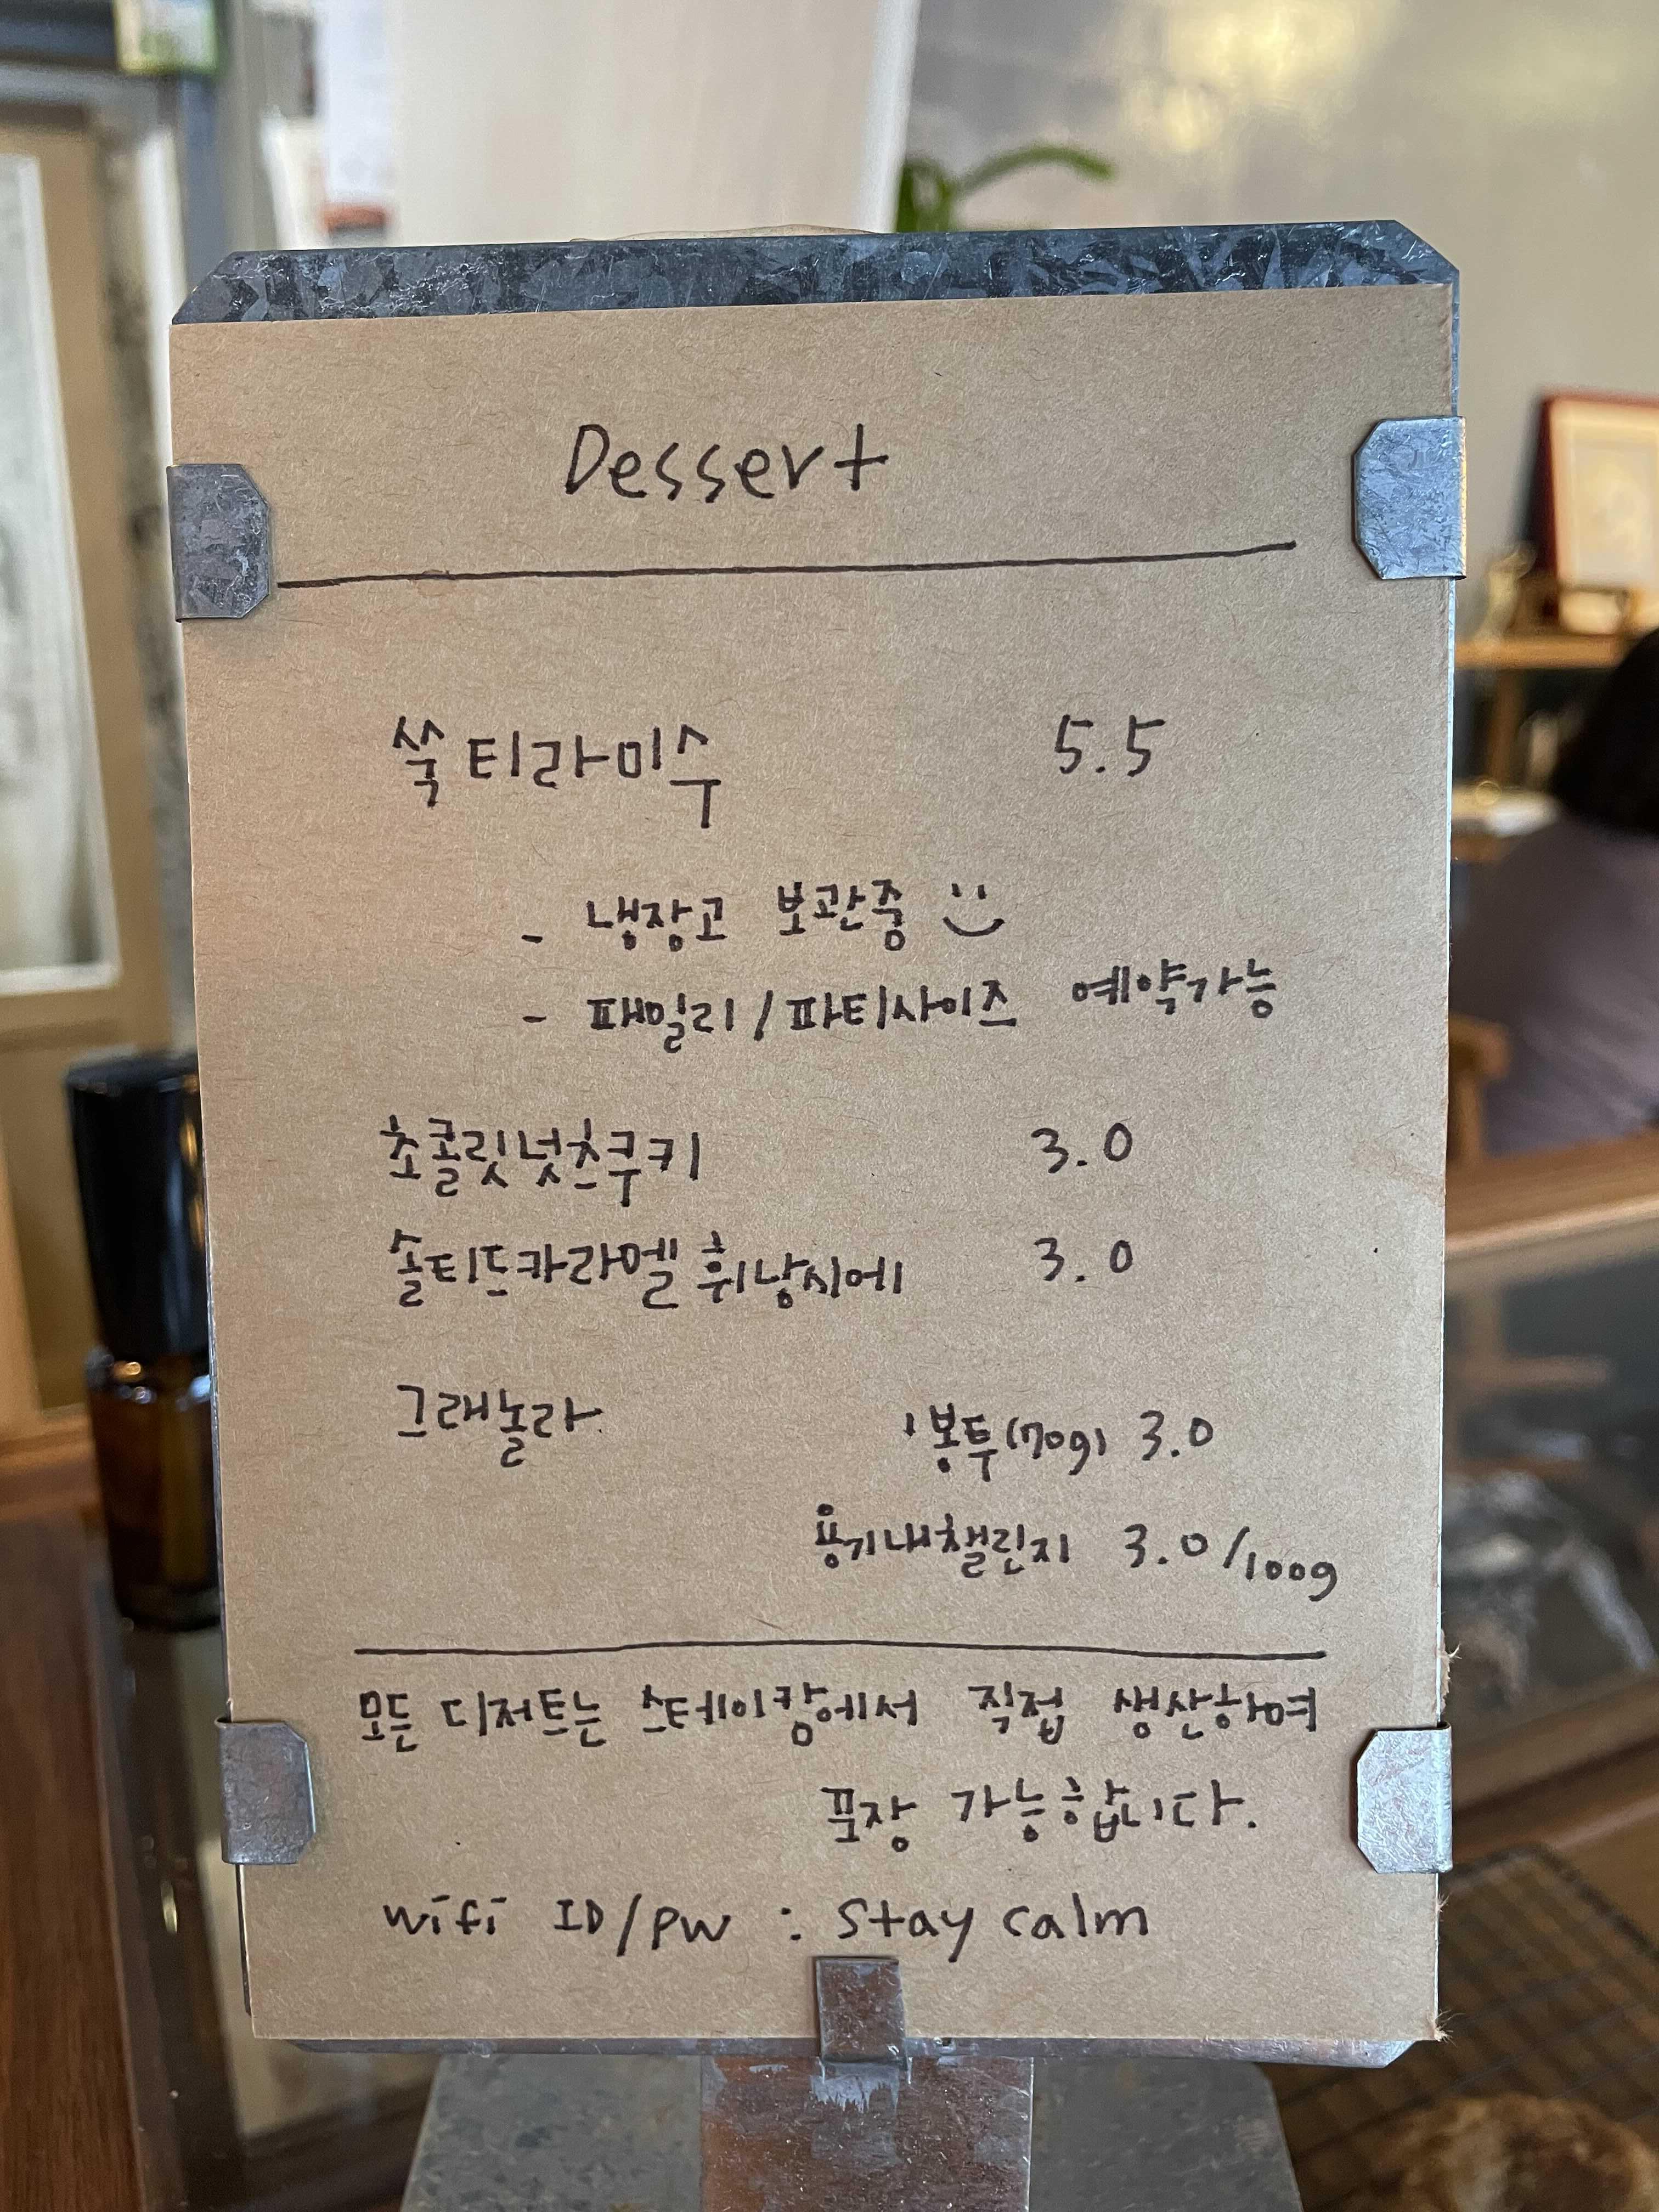 Dessert
쑥티라미수 5.5
- 냉장고 보관중
- 패밀리/파티사이즈 예약가능
초콜릿넛츠쿠키 3.0
솔티드카라멜 휘낭시에 3.0
그래놀라 1봉투(70g) 3.0
용기내챌린지 3.0/100g
모든 디저트는 스테이캄에서 직접 생산하여
포장 가능합니다.
wifi ID/PW : Stay calm